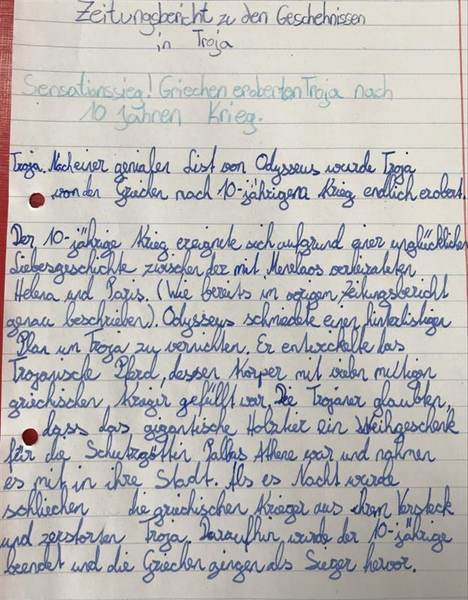 Zeitungsbericht zu den Geschehnissen
in Troja
Sensationssieg! Griechen eroberten Troja nach
10 Jahren Krieg.
Troja. Nach einer genialen List von Odysseus wurde Troja
von den Griechen nach 10-jährigem Krieg endlich erobert.
Der 10-jährige Krieg ereignete sich aufgrund einer unglücklichen
Liebesgeschichte zwischen der mit Menelaos verheirateten
Helena und Paris. (Wie bereits im vorigen Zeitungsbericht
genau beschrieben). Odysseus schmiedete einen hinterlistigen
Plan um Troja zu vernichten. Er entwickelte das
Trojanische Pferd, dessen Körper mit vielen mutigen
griechischen Krieger gefüllt war. Die Trojaner glaubten,
dass das gigantische Holztier ein Weihgeschenk
für die Schutzgöttin Pallas Athene war und nahmen
es mit in ihre Stadt. Als es Nacht wurde
schliechen die griechischen Krieger aus ihrem Versteck
und zerstörten Troja. Daraufhin wurde der 10-jährige
beendet und die Griechen gingen als Sieger hervor.